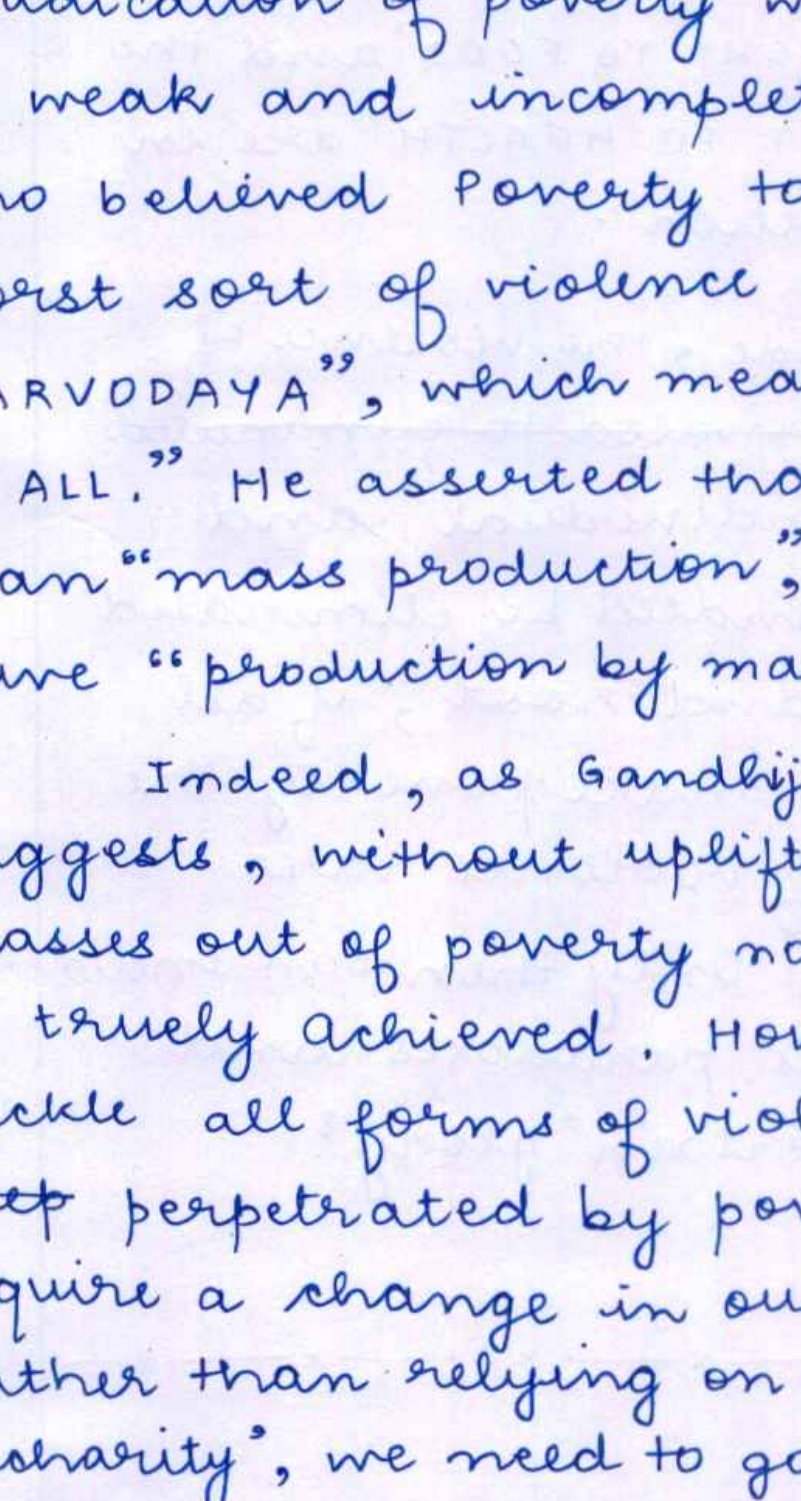 adication of poverty w
weak and incomplet
ho believed Poverty to
orst sort of violence
ARVODAYA”, which mea
ALL.” He asserted tha
an “mass production”,
ave “production by ma
Indeed, as Gandhij
ggests, without uplift
asses out of poverty no
truely achieved. How
ckle all forms of viol
ep perpetrated by pov
quire a change in ou
ather than relying on
charity’, we need to go